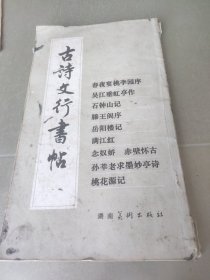 古詩文行書帖
春夜宴桃李园序
吴江垂虹亭作
石钟山记
滕王阁序
岳阳楼记
满江红
念奴娇 赤壁怀古
孙莘老求墨妙亭诗
桃花源记
湖南美術出版社